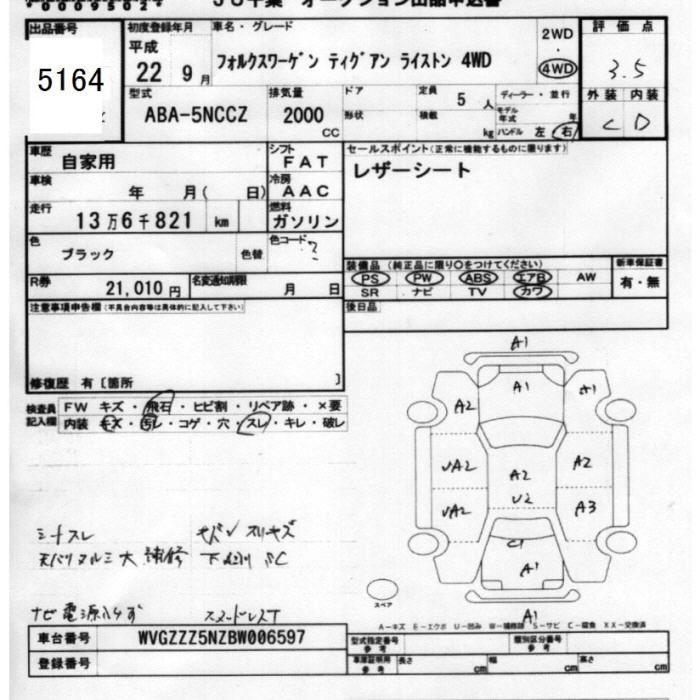 出品番号
5164
初度登録年月
平成
22 9月
車名・グレード
フォルクスワーゲン ティグアン ライストン 4WD
2WD
・
4WD
評価点
3.5
外装 内装
C D
型式
ABA-5NCCZ
排気量
2000
CC
ドア
形状
定員
5 人
積載
kg
ディーラー・並行
モデル年式 年
ハンドル 左 右
車歴
自家用
シフト
FAT
車検
年 月( 日)
冷房
AAC
走行
13万6千821 km
燃料
ガソリン
色
ブラック
色替
色コード
?
R券
21,010 円
名変通知期限
月 日
セールスポイント(正常に機能するものに限ります)
レザーシート
装備品 (純正品に限り○をつけてください)
PS PW ABS エアB AW
SR ナビ TV カワ
新車保証書
有・無
後日品
注意事項申告欄(不具合内容等は具体的に記入して下さい)
修復歴 有〔箇所 〕
検査員
記入欄
FW キズ・飛石・ヒビ割・リペア跡・×要
内装 キズ・汚レ・コゲ・穴・スレ・キレ・破レ
A1
A1
A2
A1
VA2
A2
A2
U2
VA2
A3
C1
A1
A1
スペア
シートスレ
大 補修
A-キズ E-エクボ U-凹み W-補修跡 S-サビ C-腐食 XX-交換済
車台番号
WVGZZZ5NZBW006597
登録番号
型式指定番号
参考
類別区分番号
参考
車庫証明用
参考
長さ cm
幅 cm
高さ cm